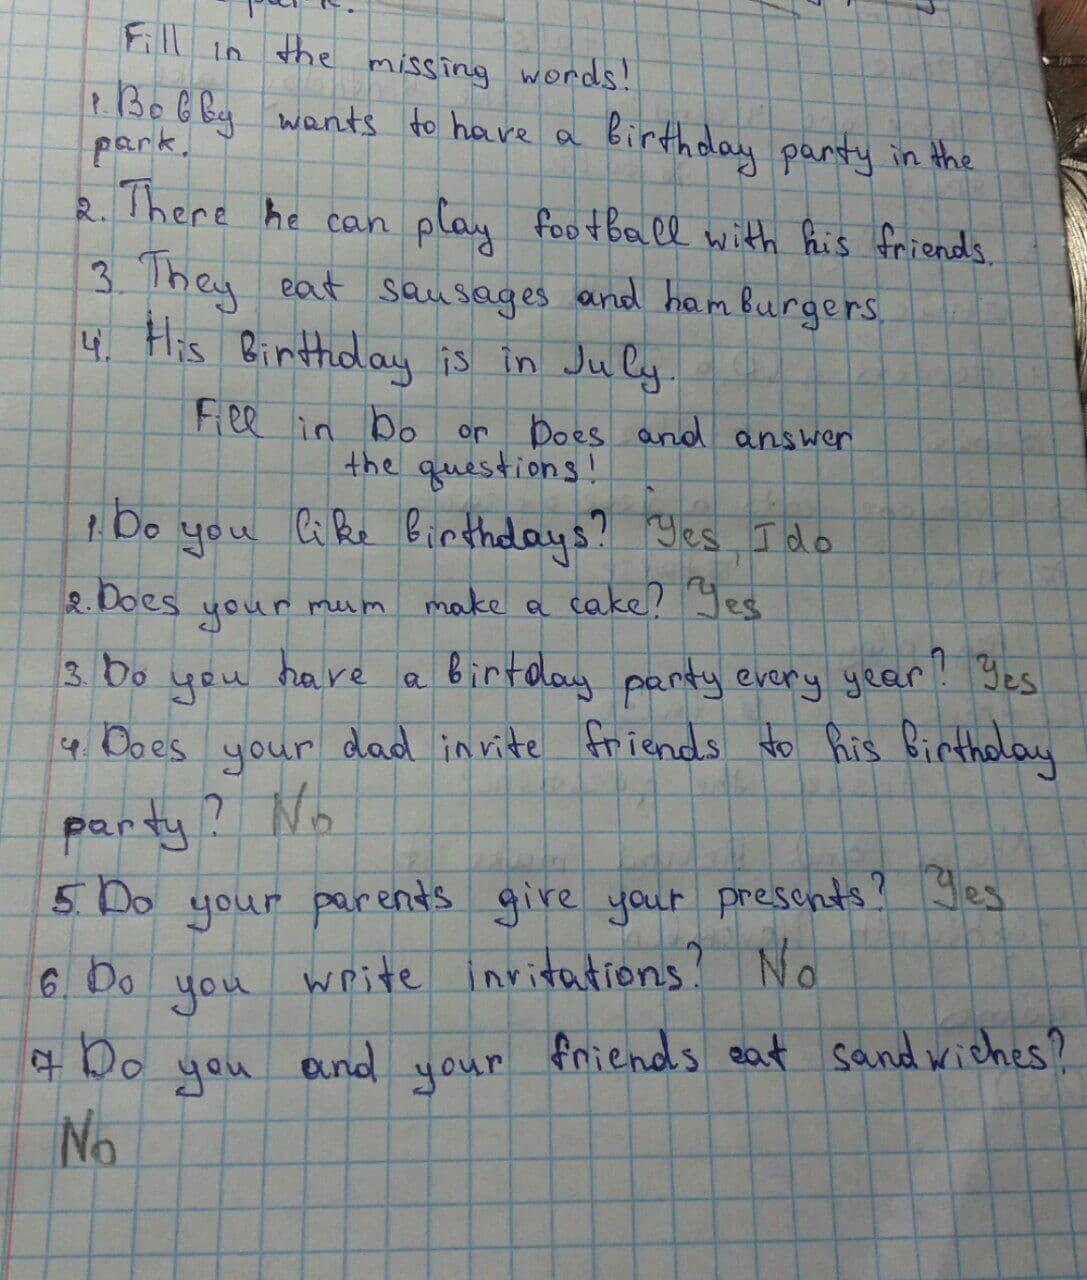 Fill in the missing words!
1. Bobby wants to have a birthday party in the
park.
2. There he can play football with his friends.
3. They eat sausages and hamburgers.
4. His birthday is in July.
Fill in Do or Does and answer
the questions!
1. Do you like birthdays? Yes, I do
2. Does your mum make a cake? Yes
3. Do you have a birtday party every year? Yes
4. Does your dad invite friends to his birthday
party? No
5. Do your parents give your presents? Yes
6. Do you write invitations? No
7 Do you and your friends eat sandwiches?
No